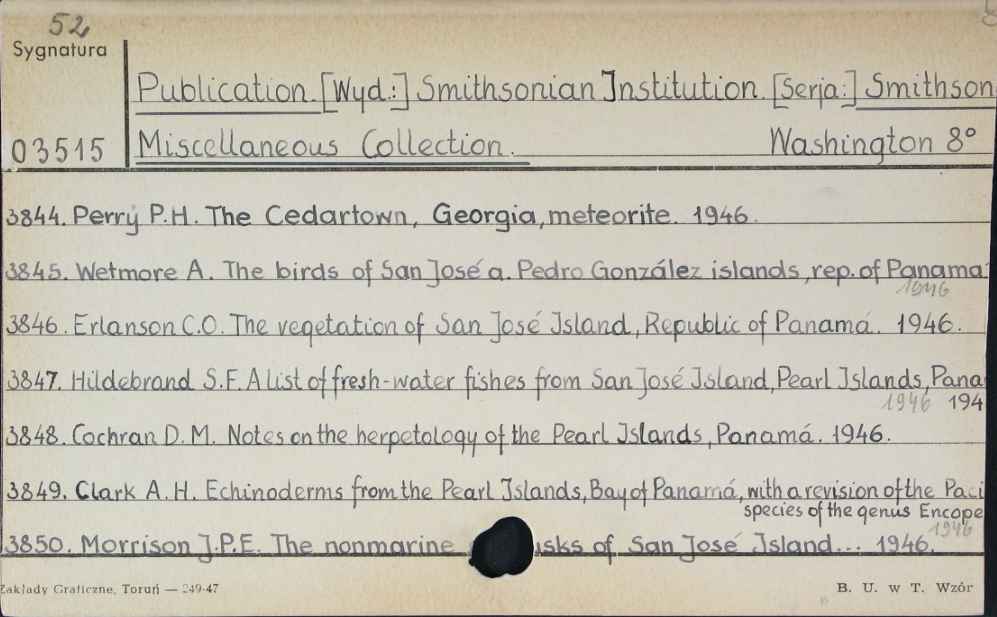 52
Sygnatura
03515
Publication. [Wyd.:] Smithsonian Institution. [Serja:] Smithson
Miscellaneous Collection. Washington 8°
3844. Perry P.H. The Cedartown, Georgia, meteorite. 1946.
3845. Wetmore A. The birds of San José a. Pedro González islands, rep. of Panama
1946
3846. Erlanson C.O. The vegetation of San José Island, Republic of Panamá. 1946.
3847. Hildebrand S.F. A list of fresh-water fishes from San José Island, Pearl Islands, Pana
1946 194
3848. Cochran D.M. Notes on the herpetology of the Pearl Islands, Panamá. 1946.
3849. Clark A.H. Echinoderms from the Pearl Islands, Bay of Panamá, with a revision of the Paci
species of the genus Encope
1946
3850. Morrison J.P.E. The nonmarine usks of San José Island... 1946.
Zakłady Graficzne, Toruń — 249-47
B. U. w T. Wzór